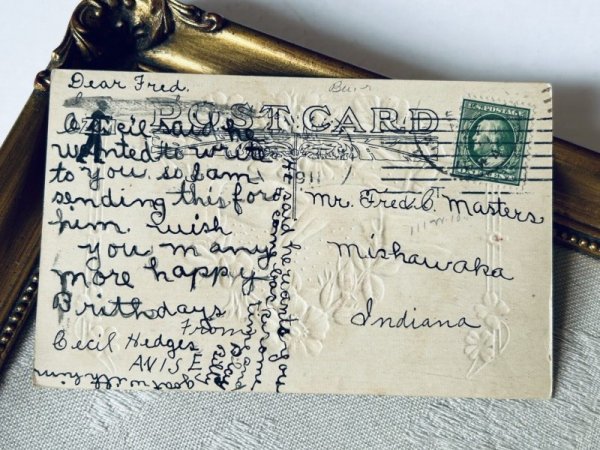 Dear Fred.
POST CARD
Cecil said he
wanted to write
to you. so I am
sending this for
him. wish
you many
more happy
Birthdays
From
Cecil Hedges
ANISE
he said he wants you
to come
time and
play
U.S. POSTAGE
1911
Mr. Fred C. Masters
Mishawaka
Indiana